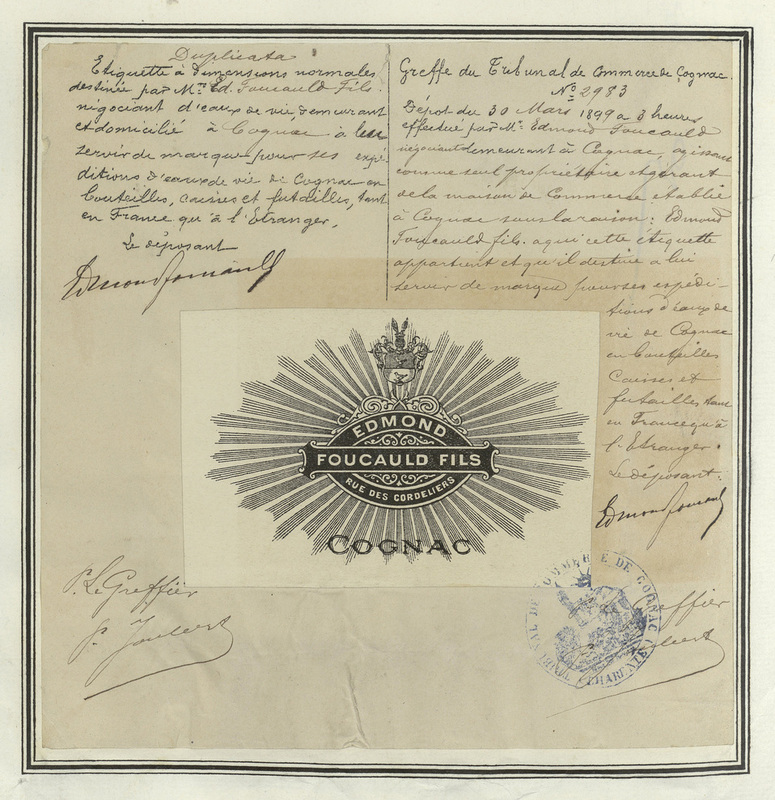 Duplicata
Etiquette à dimensions normales
destinée par Mr. Ed. Foucauld Fils.
négociant d'eaux de vie demeurant
et domicilié à Cognac à leur
servir de marque pour ses expé
ditions d'eaux de vie de Cognac en
bouteilles, caisses et futailles, tant
en France qu'à l'Etranger.
Le déposant
Edmond Foucauld
Greffe du Tribunal de Commerce de Cognac.
No 2983
Dépot du 30 Mars 1899 a 3 heures
effectué par Mr. Edmond Foucauld
négociant demeurant à Cognac, agissant
comme seul propriétaire et gérant
de la maison de Commerce établie
à Cognac sous la raison: Edmond
Foucauld fils. a qui cette étiquette
appartient et qu'il destine à lui
servir de marque pour ses expédi-
tions d'eaux de
vie de Cognac
en bouteilles
Caisses et
futailles tant
en France qu'à
l'Etranger.
Le déposant:
Edmond Foucauld
EDMOND
FOUCAULD FILS
RUE DES CORDELIERS
COGNAC
P. Le Greffier
P. Joubert
TRIBUNAL DE COMMERCE DE COGNAC
(CHARENTE)
Greffier